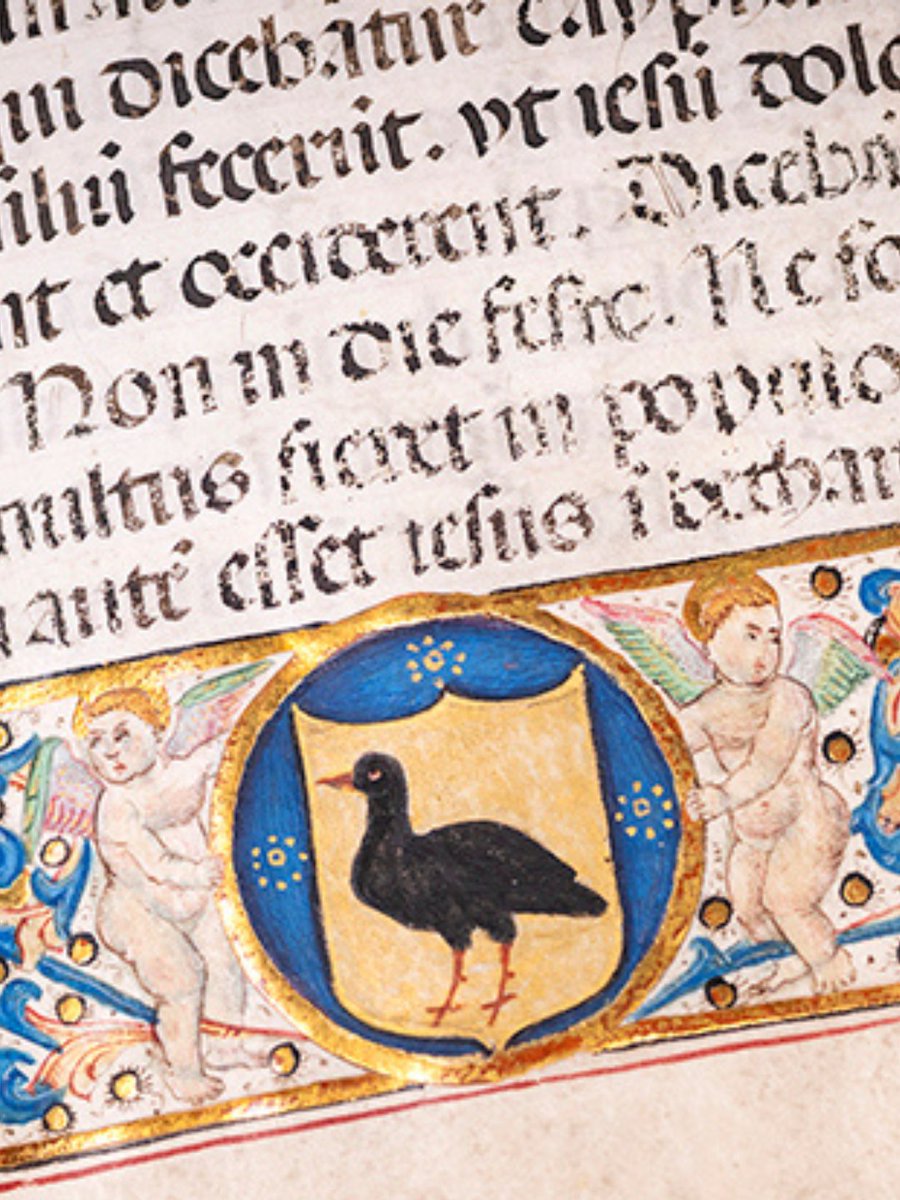 dicebatur cayph
filiu fecerut. ut iesu dolo
nt et occiderent. Diceba
Non in die festo. Ne fo
multus fieret in populo
auté esset iesus i bethan